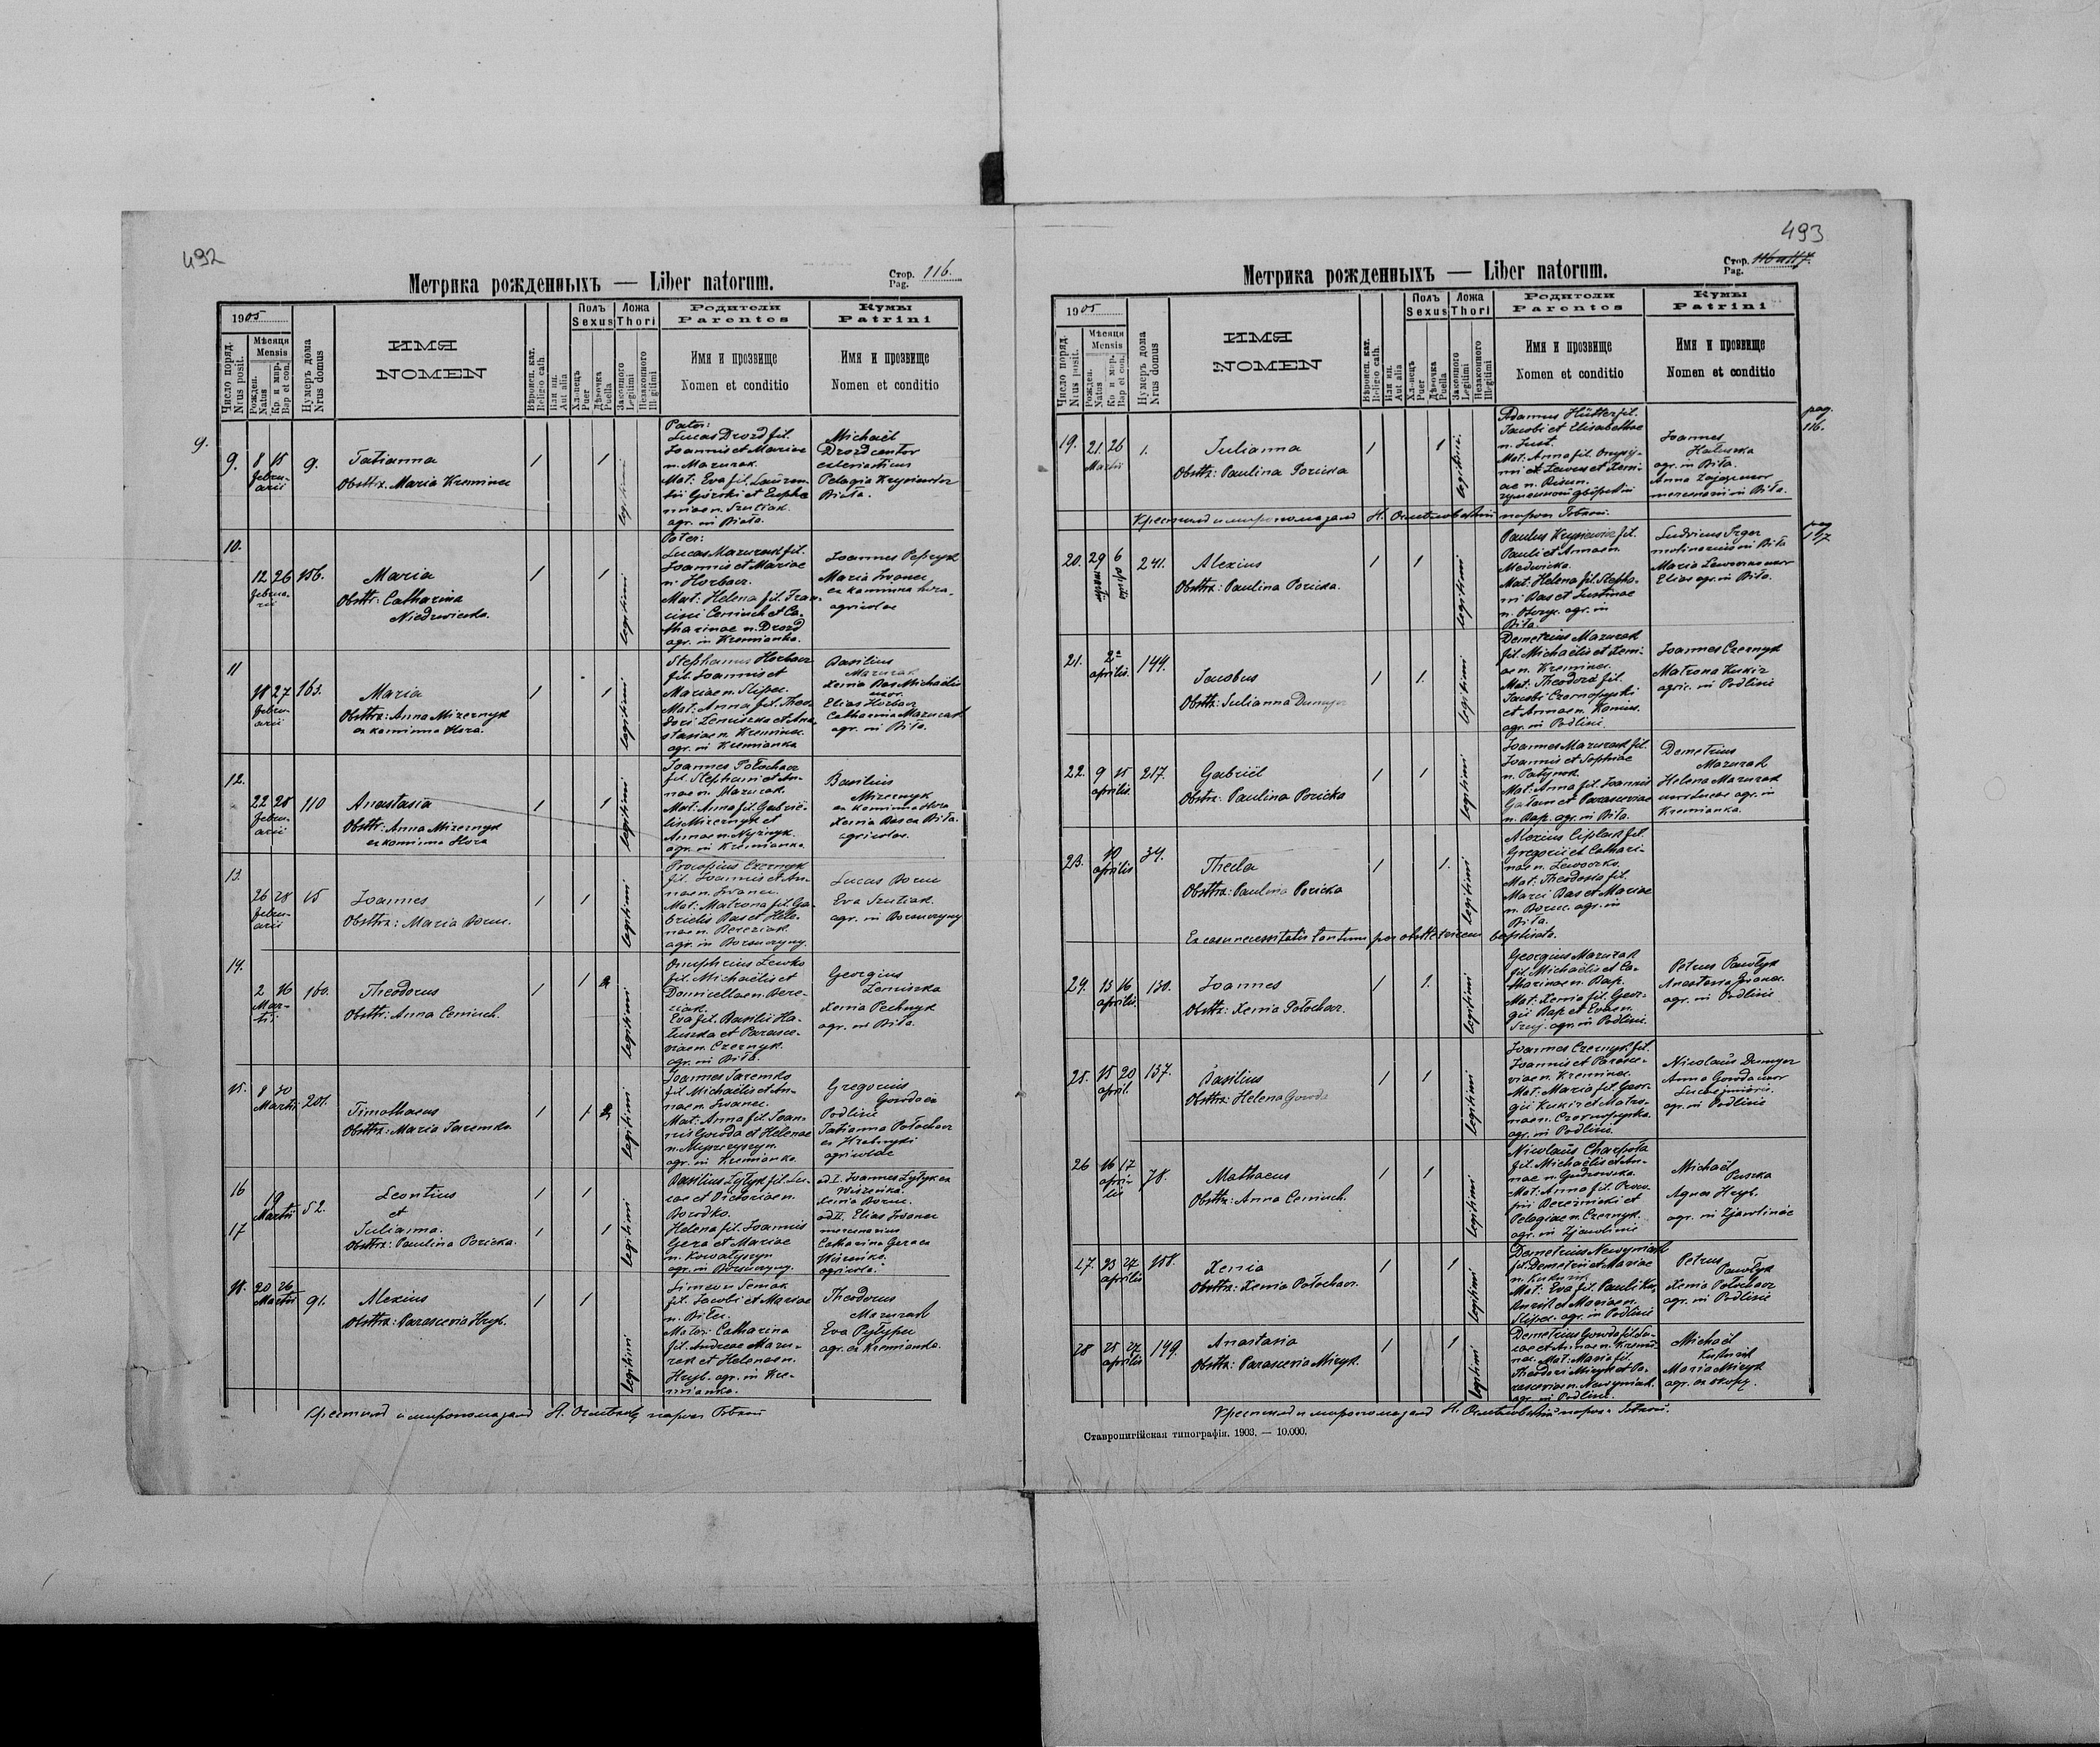 492
Метрика рожденныхъ — Liber natorum.
Стор. Pag. 116.
1905
Число поряд. Nrus posit.
Мѣсяця Mensis
Рожден. Natus
Кр. и мѵр. Bap et con.
Нумеръ дома Nrus domus
ИМЯ
NOMEN
Вѣроисп. кат. Religio cath.
Или ин. Aut alia
Полъ Sexus
Хлопецъ Puer
Дѣвочка Puella
Ложа Thori
Законного Legitimi
Незаконного Illegitimi
Родители Parentes
Имя и прозвище
Nomen et conditio
Кумы Patrini
Имя и прозвище
Nomen et conditio
9.
9. 8 15 Februarii 9.
Tatianna
Obsttx. Maria Kreminec
1 1 legitimi
Pater:
Lucas Drozd fil.
Joannis et Mariae
n. Mazurak.
Mat: Eva fil. Lauren-
tii Górski et Euphe
miae n. Szutiak.
agr. in Biała.
Michaël
Drozd cantor
eclesiasticus
Pelagia
Biała.
10. 12 26 Februarii 156.
Maria
Obsttr: Catharina
Niedzwiecka.
1 1 legitimi
Pater:
Lucas Mazurak fil.
Joannis et Mariae
n. Horbacz.
Mat: Helena fil. Fran-
cisci Ceniuch et Ca-
tharinae n. Drozd
agr. in Kremianka.
Joannes
Maria Iwanec
ex kaminna hora,
agricolae
11 18 27 Februarii 163.
Maria
Obsttrx: Anna Mizernyk
ex kaminna Hora.
1 1 legitimi
Stephanus Horbacz
fil. Joannis et
Mariae n. Slipec.
Mat: Anna fil. Theo-
dori Lemiszka et Ana-
stasiae n. Kreminec
agr. in Kremianka
Basilius
Mazurak
Xenia Bas Michaëlis
uxor.
Elias Horbacz
Catharina Mazurak
agr. in Biła.
12. 22 28 Februarii 110
Anastasia
Obsttr: Anna Mizernyk
ex kaminna Hora
1 1 legitimi
Joannes Połochacz
fil. Stephani et An-
nae n. Mazurak.
Mat: Anna fil. Gabrië-
lis Mizernyk et
Annae n. Nyznyk.
agr. in Kremianka.
Basilius
Mizernyk
ex Kaminna Hora
Xenia Bas ex Biła.
agricolae.
13. 26 28 Februarii 15
Joannes
Obsttrx: Maria Boruc.
1 1 legitimi
Procopius Czernyk
fil. Joannis et An-
nae n. Iwanec.
Mat: Matrona fil. Ga-
brielis Bas et Hele-
nae n. Bereziak.
agr. in Borsuczyny.
Lucas Boruc
Eva Szutiak.
agr. in Borsuczyny
14. 2 16 Martii 160.
Theodorus
Obsttr: Anna Ceniuch.
1 1 legitimi
Onuphrius Lewko
fil. Michaëlis et
Domicellae n. Bere-
ziak.
Eva fil. Basilii Ha-
łuszka et Parasce-
viae n. Czernyk.
agr. in Biła.
Georgius
Lemiszka
Xenia Pechnyk
agr. in Biła.
15. 8 30 Martii 201.
Timothaeus
Obsttrx: Maria Jaremko
1 1 legitimi
Joannes Jaremko
fil. Michaëlis et An-
nae n. Iwanec.
Mat: Anna fil. Joan-
nis Gowda et Helenae
n. Myszczyszyn.
agr. in Kremianka.
Gregorius
Gowda ex
Podlisie
Tatianna Połochacz
ex Hrabnyki
agricolae
16
17 19 Martii 52.
Leontius
et
Julianna.
Obsttrx: Paulina Poricka.
1 1
1 1 legitimi
Basilius Łytyk fil. Lu-
cae et Victoriae n.
Borodko.
Helena fil. Joannis
Gera et Mariae
n. Kowałyszyn
agr. in Borsuczyny.
ad I. Joannes Łytyk ex
Wiszenka.
Xenia Boruc.
ad II. Elias Iwanec
mercenarius
Catharina Gera ex
Wiszenka.
agricola.
18. 20 26 Martii 91.
Alexius
Obsttrx: Parascevia Hryb.
1 1 legitimi
Simeon Semak
fil. Jacobi et Mariae
n. Biłec.
Mater: Catharina
fil. Andreae Mazu-
rak et Helenae n.
Hryb. agr. in Kre-
mianka.
Theodorus
Mazurak
Eva Pyłypec
agr. ex Kremianka.
Крестилъ и миропомазалъ
493
Метрика рожденныхъ — Liber natorum.
Стор. Pag. 116 и 117.
1905
Число поряд. Nrus posit.
Мѣсяця Mensis
Рожден. Natus
Кр. и мѵр. Bap et con.
Нумеръ дома Nrus domus
ИМЯ
NOMEN
Вѣроисп. кат. Religio cath.
Или ин. Aut alia
Полъ Sexus
Хлопецъ Puer
Дѣвочка Puella
Ложа Thori
Законного Legitimi
Незаконного Illegitimi
Родители Parentes
Имя и прозвище
Nomen et conditio
Кумы Patrini
Имя и прозвище
Nomen et conditio
pag.
116.
19. 21. 26 Martii 1.
Julianna
Obsttrx: Paulina Poricka
1 1 legitimi
Adamus Hütter fil.
Jacobi et Elisabethae
n. Just.
Mat: Anna fil.
Joannes
Hałuszka
agr. in Biła.
Anna
mercenarii in Biła.
Крестилъ и миропомазалъ
pag
117
20. 29 Martii 6 aprilis 241.
Alexius
Obsttrx: Paulina Poricka.
1 1 legitimi
Paulus Krysiewicz fil.
Pauli et Annae n.
Medwicka.
Mat: Helena fil. Stepha-
ni Bas et Justinae
agr. in
Biła.
Ludvicus
molinarius in Biła
Maria uxor
Eliae agr. in Biła.
21. 2 aprilis 144.
Jacobus
Obsttr: Julianna Dumycz
1 1. legitimi
Demetrius Mazurak
fil. Michaëlis et Xeni-
ae n. Kreminec.
Mat: Theodora fil.
Jacobi Czornopyski
et Annae n.
agr. in Podlisie.
Joannes Czernyk
Matrona Kukiz
agric. in Podlisie
22. 9 15 aprilis 217.
Gabriël
Obstrx: Paulina Poricka
1 1 legitimi
Joannes Mazurak fil.
Joannis et Sophiae
n. Patynok.
Mat: Anna fil. Joannis
Gałan et Parasceviae
n. Bap. agr. in Biła.
Demetrius
Mazurak
Helena Mazurak
uxor Lucae agr. in
Kremianka.
23. 10 aprilis 34.
Thecla
Obsttrx: Paulina Poricka
1 1. legitimi
Alexius Ciplak fil.
Gregorii et Cathari-
nae n.
Mat: Theodosia fil.
Marci Bas et Mariae
n. Boruc. agr. in
Biła.
Ex casu necessitatis tantum per obstetricem baptisata.
24. 13 16 aprilis 130.
Joannes
Obsttx: Xenia Połochacz.
1 1. legitimi
Georgius Mazurak
fil. Michaëlis et Ca-
tharinae n. Bap.
Mat: Xenia fil. Geor-
gii Bap et Evae n.
agr. in Podlisie.
Petrus Pawłyk
Anastasia Iwanec.
agr. in Podlisie
25. 15 20 april. 137.
Basilius
Obsttrx: Helena Gowda
1 1 legitimi
Joannes Czernyk fil.
Joannis et Parasce-
viae n. Kreminec.
Mat: Maria fil. Geor-
gii Kukiz et Matro-
nae n. Czornopyska.
agr. in Podlisie.
Nicolaüs Dumycz
Anna Gowda uxor
Lucae junioris.
agr. in Podlisie
26 16 17 aprilis 78.
Mathaeus
Obsttr: Anna Ceniuch.
1 1 legitimi
Nicolaüs Charpota
fil. Michaëlis et An-
nae n.
Mat: Anna fil. Proco-
pii Berezinski et
Pelagiae n. Czernyk.
agr. in Zjawlinie
Michaël
Puszka
Agnes Hryb.
agr. in Zjawlinie
27. 23 24 aprilis 158.
Xenia
Obsttrx: Xenia Połochacz.
1 1 legitimi
Demetrius Newyniak
fil. Demetrii et Mariae
n.
Mat: Eva fil. Pauli
et Mariae n.
Slipec. agr. in Podlisie
Petrus
Pawłyk
Xenia Połochacz
agr. in Podlisie
28 25 27 aprilis 149.
Anastasia
Obsttrx: Parascevia Mizyk.
1 1 legitimi
Demetrius Gowda fil. Lu-
cae et Annae n. Kremi-
nec. Mat: Maria fil.
Theodori Mizyk et Pa-
rasceviae n. Newyniak.
agr. in Podlisie.
Michaël
Kusznir
Maria Mizyk
agr. ex
Крестилъ и миропомазалъ
Ставропигійская типографія. 1903. — 10.000.